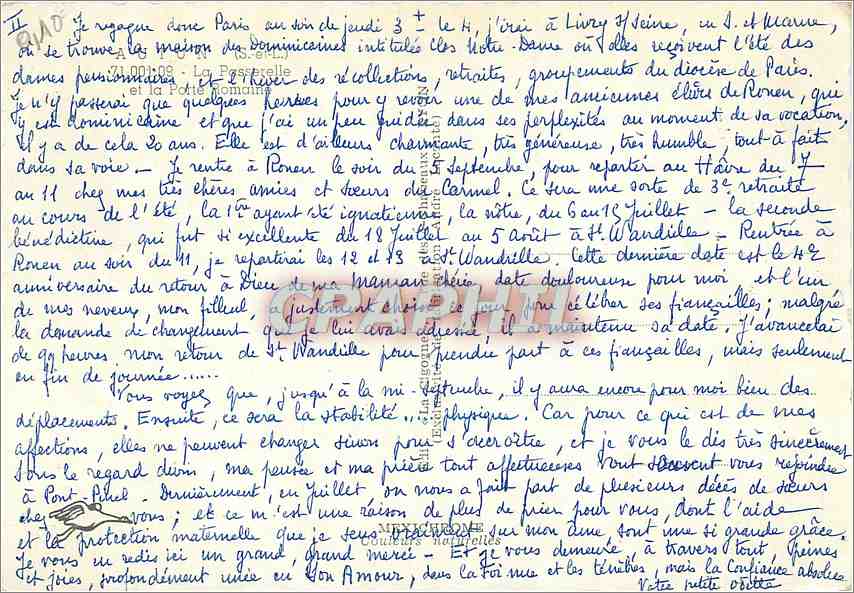 II
Je regagne donc Paris au soir de jeudi 3 le 4, j'irai à Livry s/Seine, en S. et Marne,
où se trouve la maison des Dominicaines intitulée Clos Notre-Dame où elles reçoivent l'été des
AUTUN (S.-et-L.)
dames pensionnaires, et l'hiver des récollections, retraites, groupements du diocèse de Paris.
71.001.09 - La Passerelle
et la Porte Romaine
Je n'y passerai que quelques heures pour y revoir une de mes anciennes élèves de Rouen, qui
y est dominicaine et que j'ai un peu guidée dans ses perplexités au moment de sa vocation,
il y a de cela 20 ans. Elle est d'ailleurs charmante, très généreuse, très humble, tout à fait
dans sa voie. - Je rentre à Rouen le soir du 5 septembre, pour repartir au Hâvre du 7
au 11 chez mes très chères amies et sœurs du Carmel. Ce sera une sorte de 3e retraite
au cours de l'été, la 1ère ayant été ignatienne, la nôtre, du 6 au 15 Juillet - la seconde
bénédictine, qui fut si excellente du 18 Juillet au 5 Août à St Wandrille - Rentrée à
Rouen au soir du 11, je repartirai les 12 et 13 à St Wandrille. Cette dernière date est le 4e
anniversaire du retour à Dieu de ma Maman chérie, date douloureuse pour moi, et l'un
de mes neveux, mon filleul, a justement choisi ce jour pour célébrer ses fiançailles; malgré
la demande de changement que je lui avais adressée, il a maintenu sa date. J'avancerai
de qq heures mon retour de St Wandrille pour prendre part à ces fiançailles, mais seulement
en fin de journée......
Vous voyez que, jusqu'à la mi-septembre, il y aura encore pour moi bien des
déplacements. Ensuite, ce sera la stabilité... physique. Car pour ce qui est de mes
affections, elles ne peuvent changer sinon pour s'accroître, et je vous le dis très sincèrement
Sous le regard divin, ma pensée et ma prière tout affectueuses vont souvent vous rejoindre
à Pont-. Dernièrement, en Juillet on nous a fait part de plusieurs décès de sœurs
chez vous; et ce m'est une raison de plus de prier pour vous, dont l'aide
MEXICHROME
et la protection maternelle que je sens sur mon âme, sont une si grande grâce.
Couleurs naturelles
Je vous en redis ici un grand, grand merci - Et je vous demeure, à travers tout, peines
et joies, profondément unie en Son Amour, dans la Foi nue et les ténèbres, mais la Confiance absolue
Votre petite Odette
GRAPHTI